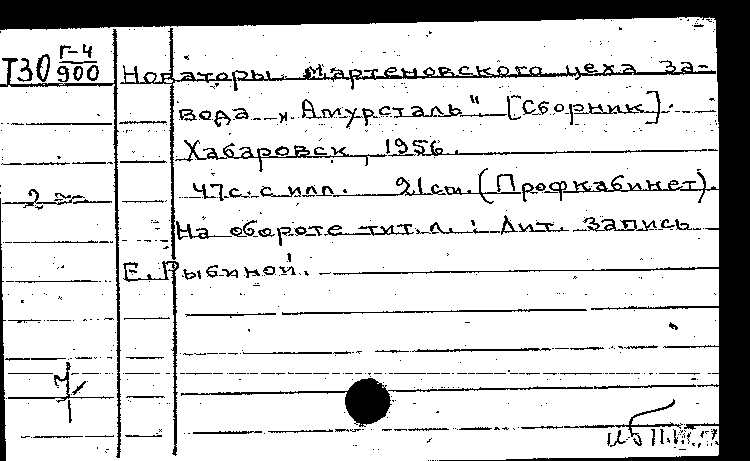 Т30 Г-4/900 Новаторы мартеновского цеха за-
вода „Амурсталь". [Сборник].
Хабаровск, 1956.
47с. с илл. 21см. (Профкабинет).
На обороте тит. л. : Лит. запись
Е. Рыбиной.